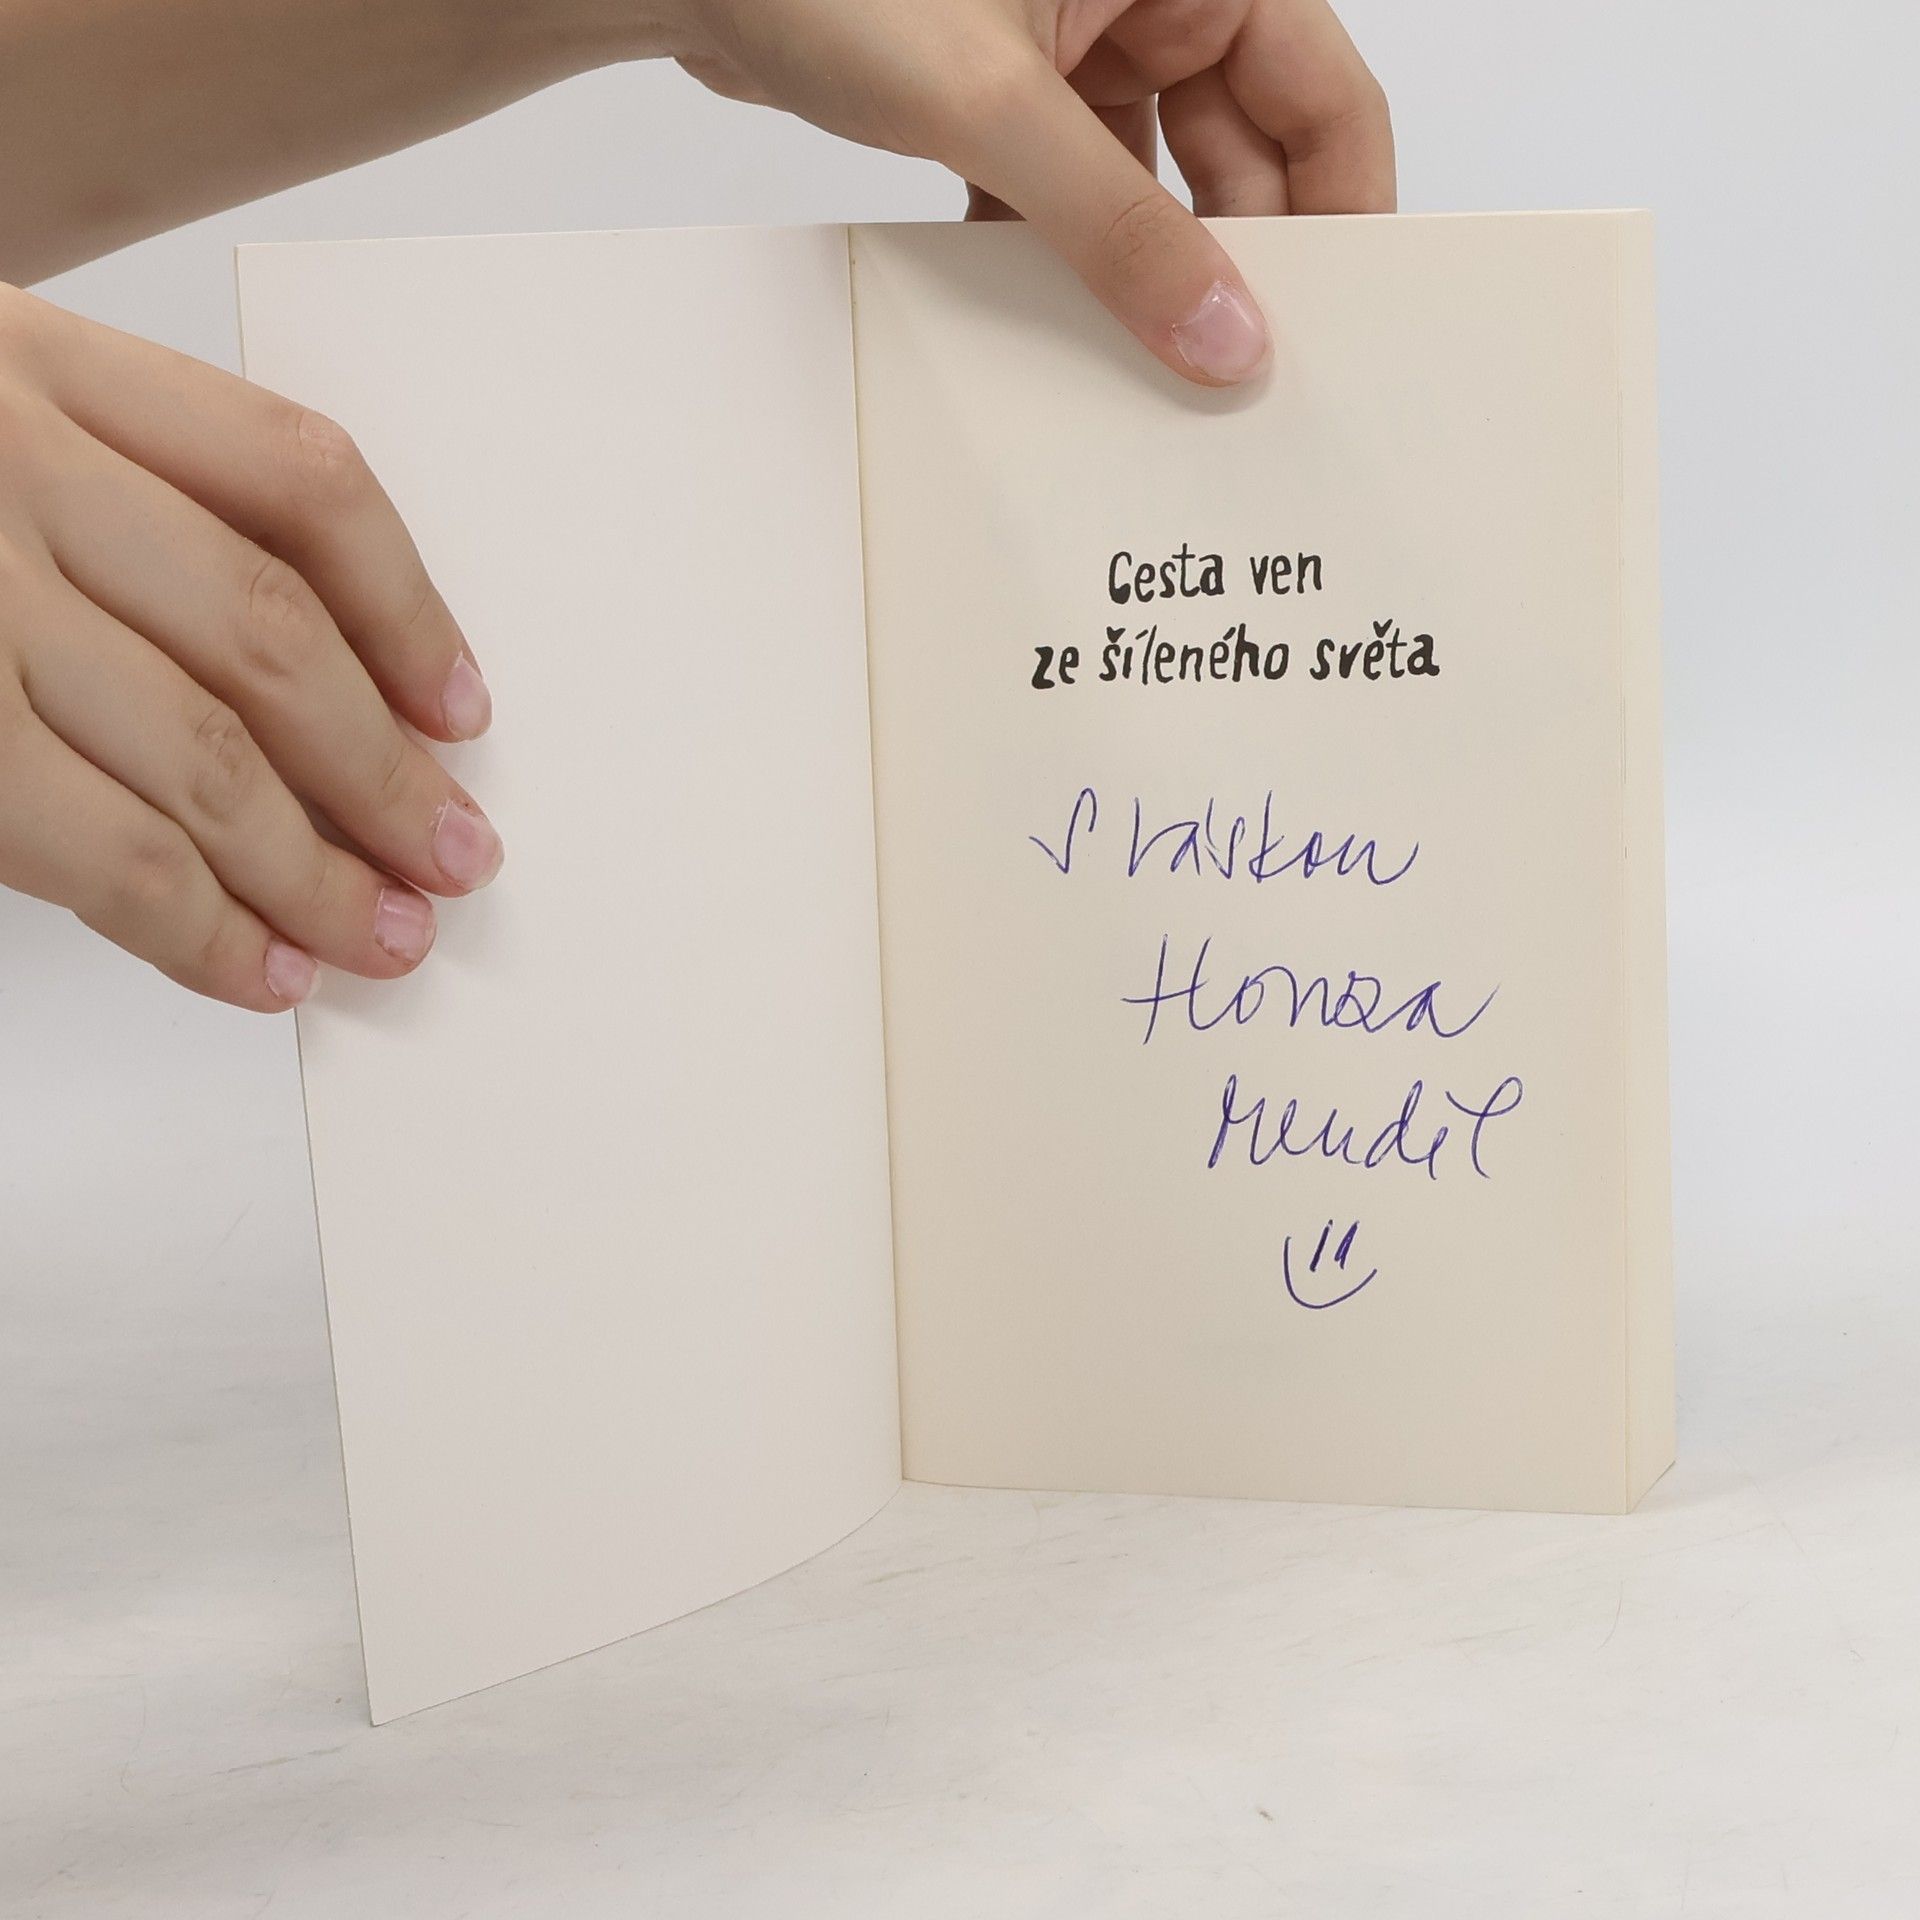 Cesta ven
ze šíleného světa
S láskou
Honza
Mendil